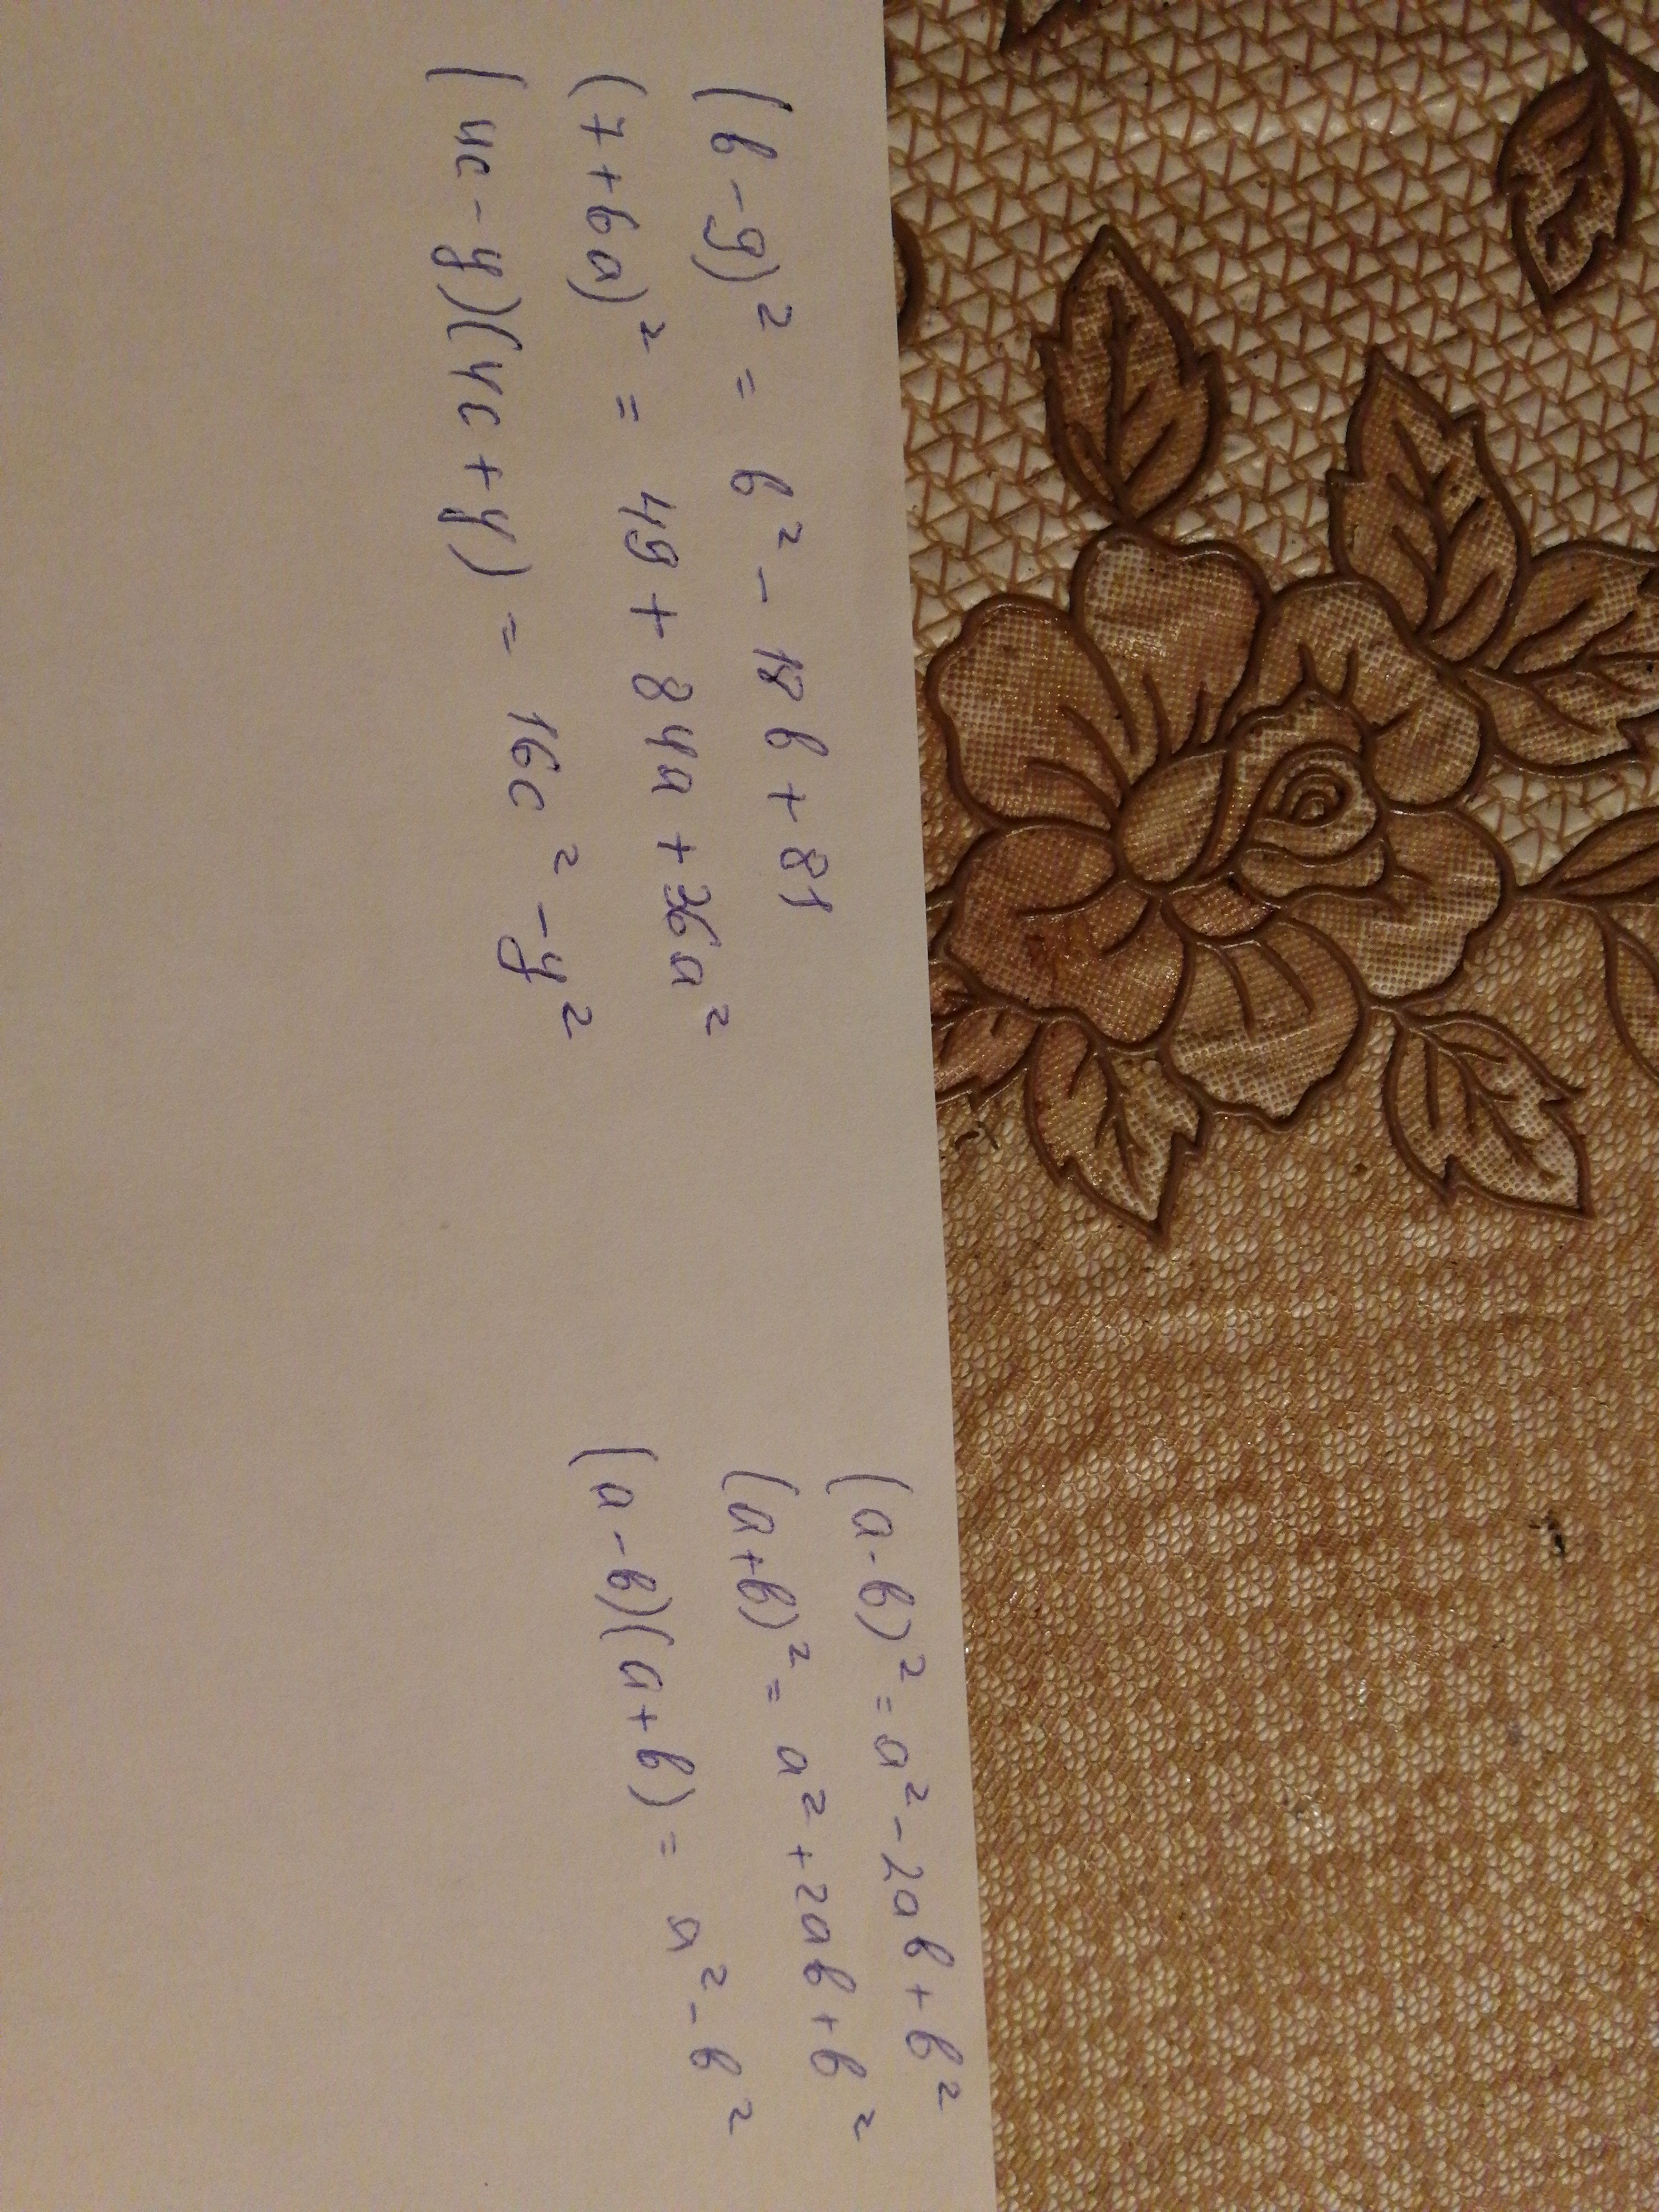 (b - 9)² = b² - 18b + 81
(7 + 6a)² = 49 + 84a + 36a²
(4c - y)(4c + y) = 16c² - y²
(a - b)² = a² - 2ab + b²
(a + b)² = a² + 2ab + b²
(a - b)(a + b) = a² - b²